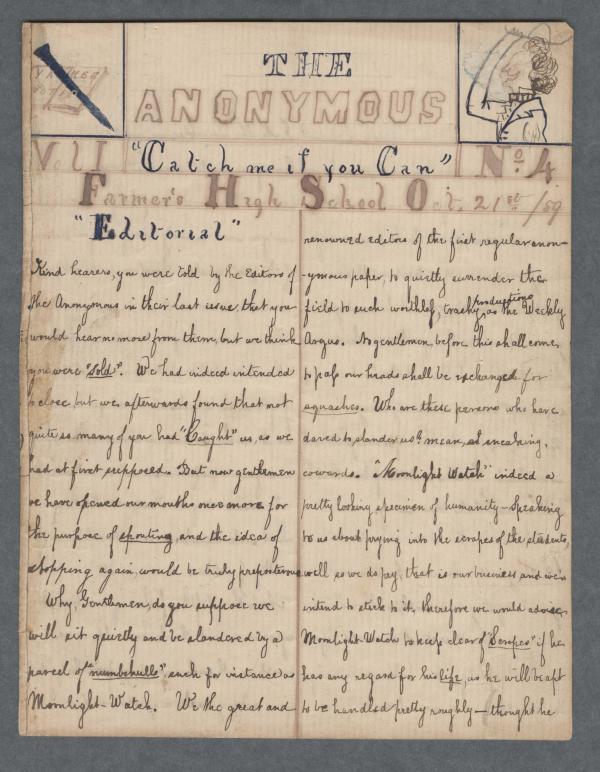 THE
ANONYMOUS
Vol I "Catch me if you Can" No. 4
Farmer's High School Oct. 21st /59
"Editorial"
Kind hearers, you were told by the Editors of
the Anonymous in their last issue, that you
would hear no more from them, but we think
you were "sold". We had indeed intended
to close but we afterwards found that not
quite so many of you had "Caught" us, as we
had at first supposed. But now gentlemen
we have opened our mouths once more for
the purpose of spouting, and the idea of
stopping again, would be truly preposterous
Why, Gentlemen, do you suppose we
will sit quietly and be slandered by a
parcel of "numbskulls" such for instance as
Moonlight-Watch. We the great and
renowned editors of the first regular anon-
-ymous paper, to quietly surrender the
field to such worthless, trashy productions as the Weekly
Argus. No gentlemen, before this shall come
to pass our heads shall be exchanged for
squashes. Who are these persons who have
dared to slander us? mean, sneaking,
cowards. "Moonlight Watch" indeed a
pretty looking specimen of humanity—Speaking
to us about prying into the scrapes of the students,
well so we do pry, that is our business and we
intend to stick to it, therefore we would advise
Moonlight-Watch to keep clear of "Scrapes" if he
has any regard for his life, as he will be apt
to be handled pretty roughly— thought he